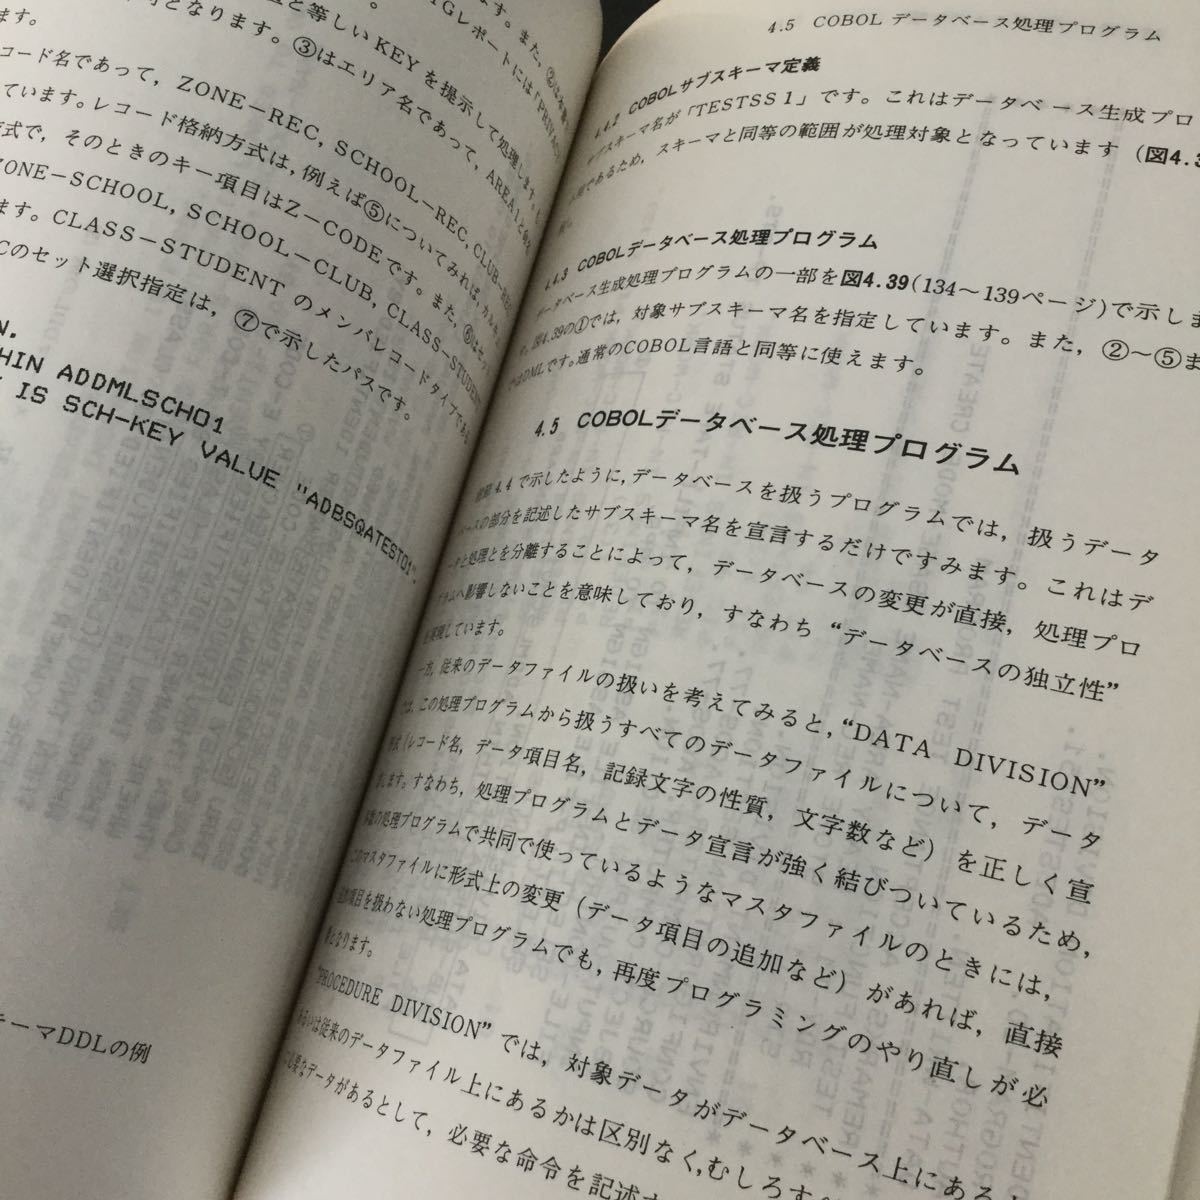 ます。また、②は
IGレポートには「PRIVAC
と等しいKEYを提示して処理します。
となります。③はエリア名であって、AREA1と
ます。
コード名であって、ZONE－REC, SCHOOL－REC, CLUB－RE
ています。レコード格納方式は、例えば⑤についてみれば、
方式で、そのときのキー項目はZ－CODEです。また、⑥は
ZONE－SCHOOL, SCHOOL－CLUB, CLASS－STUDENT
ます。CLASS－STUDENT のメンバレコードタイプである
Cのセット選択指定は、⑦で示したパスです。
N.
HIN ADDMLSCH01
Y IS SCH-KEY VALUE "ADBSQATEST01".
ーマDDLの例
4.5 COBOL データベース処理プログラム
4.4.2 COBOLサブスキーマ定義
サブスキーマ名が「TESTSS1」です。これはデータベース生成プロ
であるため、スキーマと同等の範囲が処理対象となっています（図4.3
4.4.3 COBOLデータベース処理プログラム
データベース生成処理プログラムの一部を図4.39(134～139ページ)で示しま
図4.39の①では、対象サブスキーマ名を指定しています。また、②～⑤ま
ではDMLです。通常のCOBOL言語と同等に使えます。
4.5 COBOLデータベース処理プログラム
4.4で示したように、データベースを扱うプログラムでは、扱うデータ
ベースの部分を記述したサブスキーマ名を宣言するだけですみます。これはデ
ータと処理とを分離することによって、データベースの変更が直接、処理プロ
グラムへ影響しないことを意味しており、すなわち“データベースの独立性”
を実現しています。
一方、従来のデータファイルの扱いを考えてみると、“DATA DIVISION”
では、この処理プログラムから扱うすべてのデータファイルについて、データ
形式（レコード名、データ項目名、記録文字の性質、文字数など）を正しく宣
します。すなわち、処理プログラムとデータ宣言が強く結びついているため、
多数の処理プログラムで共同で使っているようなマスタファイルのときには、
このマスタファイルに形式上の変更（データ項目の追加など）があれば、直接
項目を扱わない処理プログラムでも、再度プログラミングのやり直しが必
要となります。
“PROCEDURE DIVISION”では、対象データがデータベース上にある
あるいは従来のデータファイル上にあるかは区別なく、むしろす
必要なデータがあるとして、必要な命令を記述す